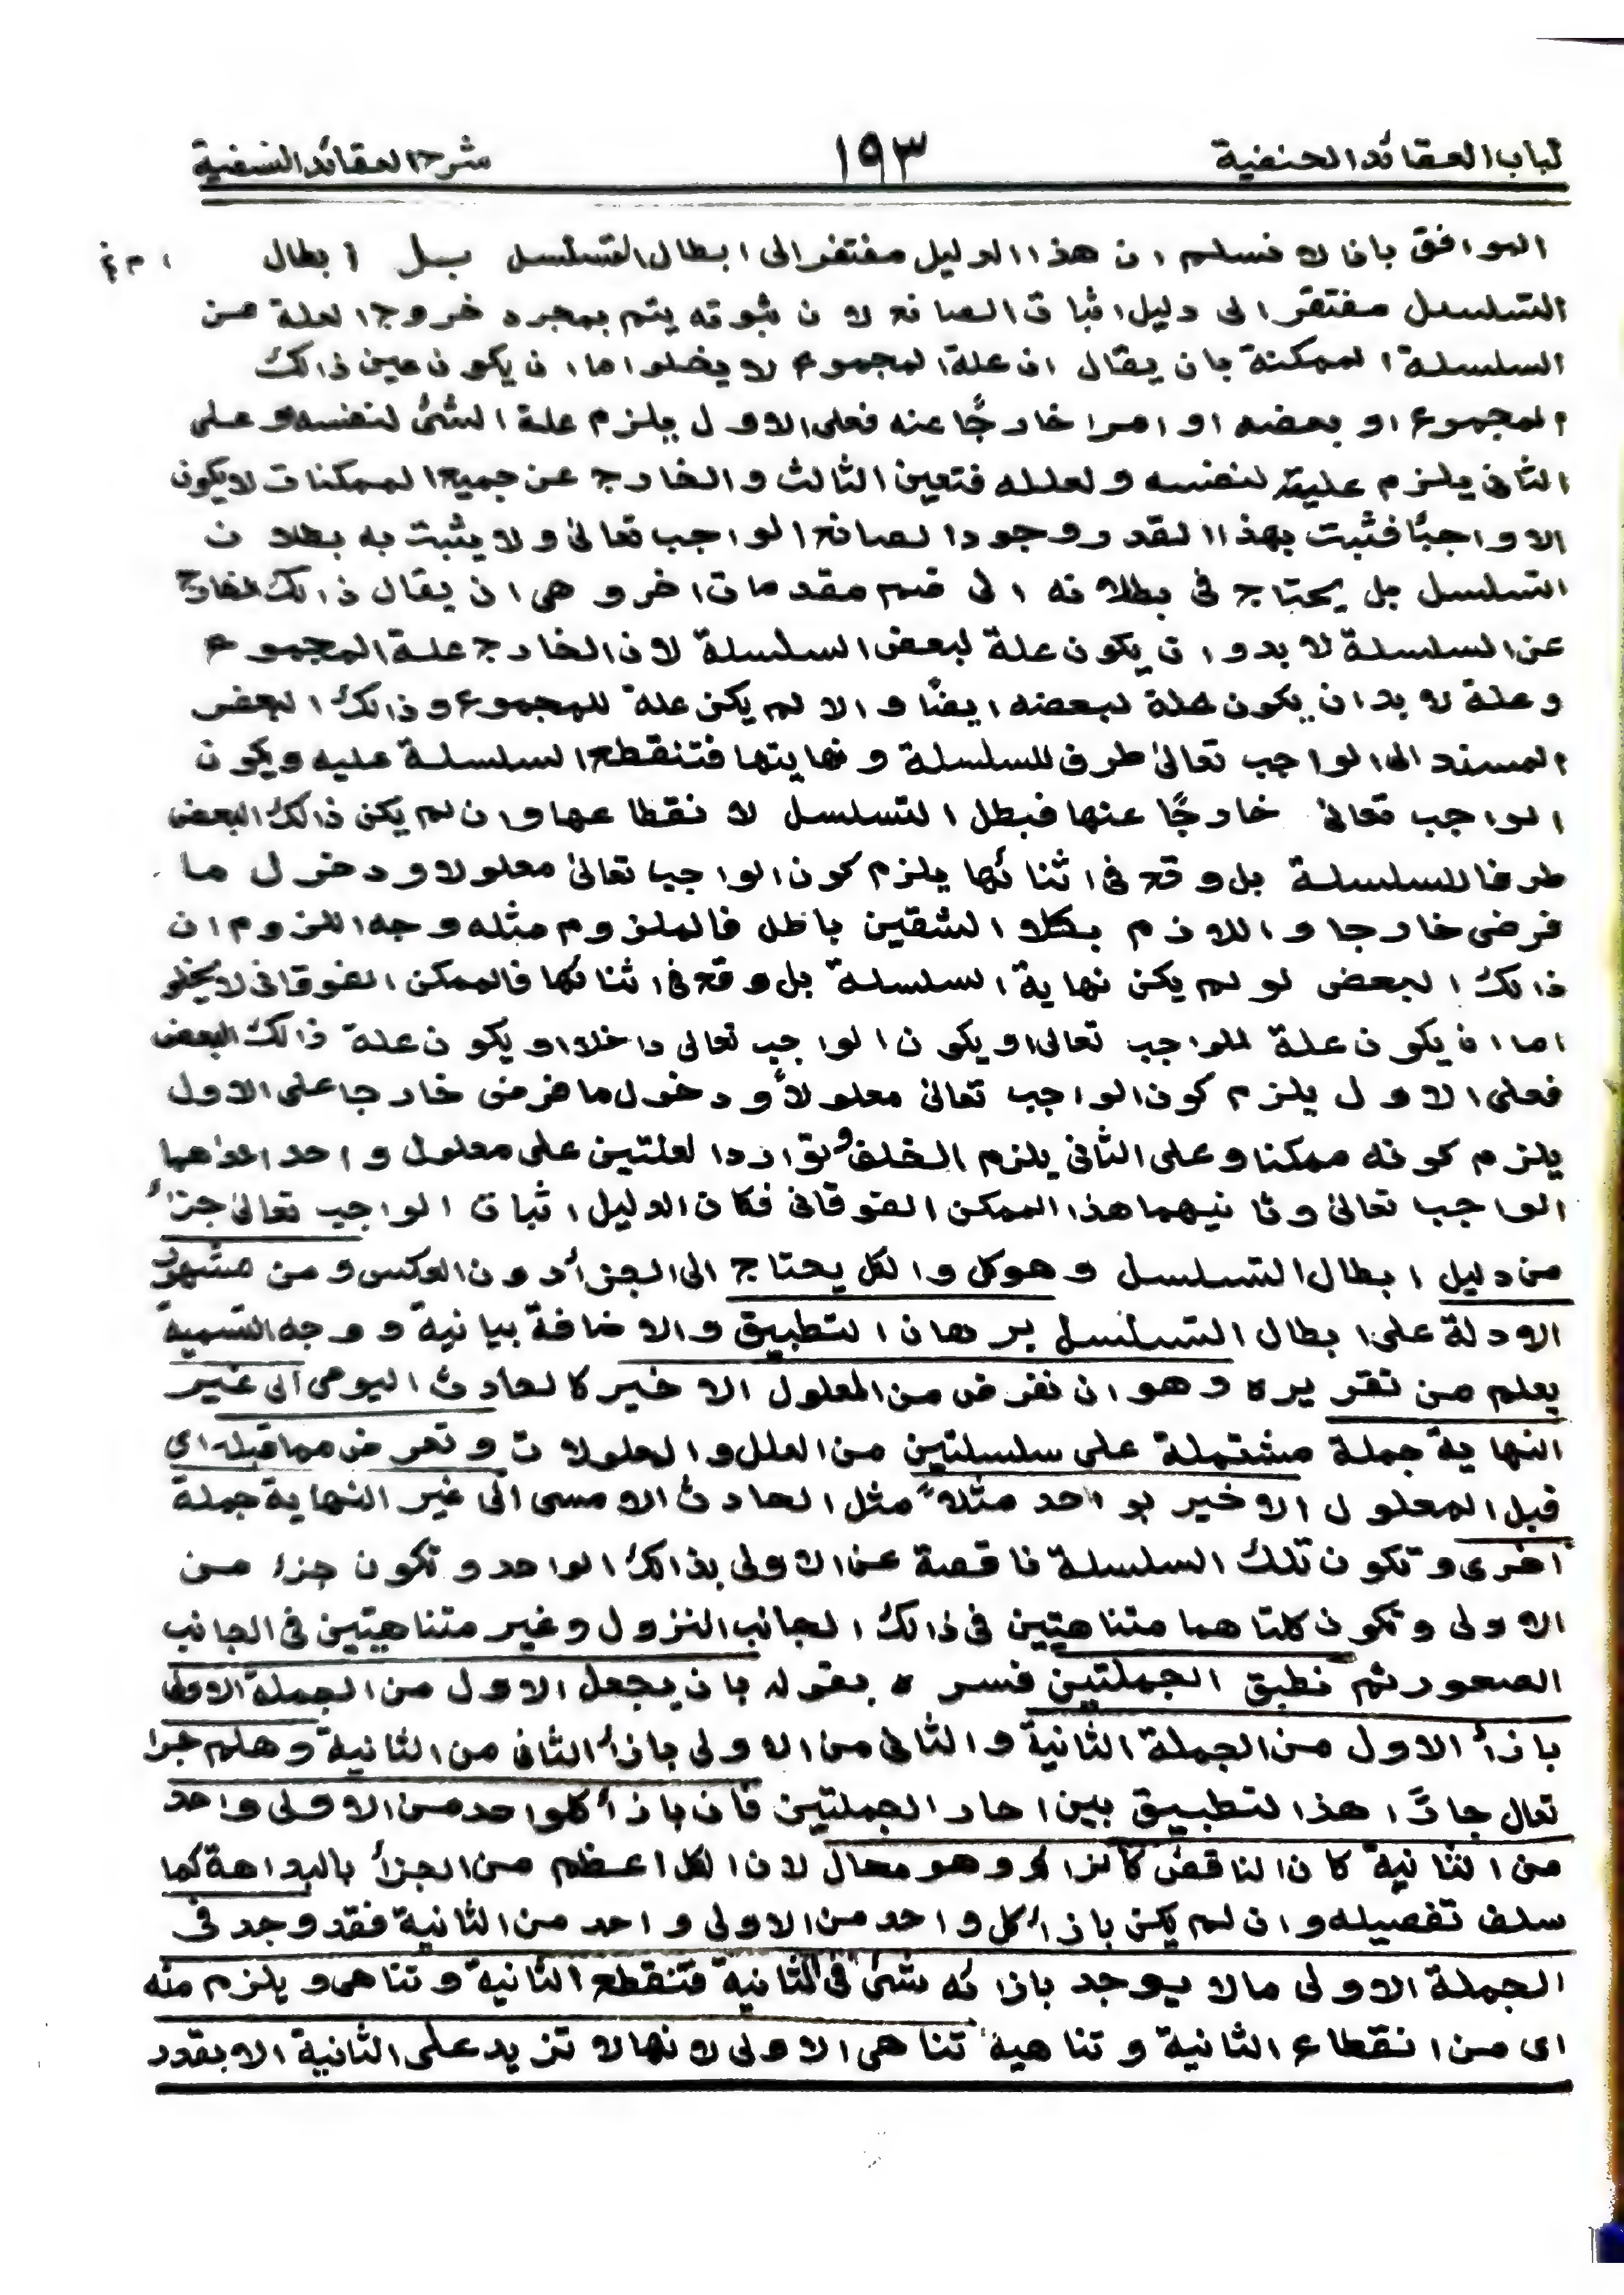 لباب العقائد الحنفية ١٩٣ شرح العقائد النسفية
الموافق بانا لا نسلم ان هذا الدليل مفتقر الى ابطال التسلسل بل ابطال
التسلسل مفتقر الى دليل اثبات الصانع لان ثبوته يتم بمجرد خروج العلة من
السلسلة الممكنة بان يقال ان علة المجموع لا يخلوا ما ان يكون عين ذالك
المجموع او بعضه او امرا خارجًا عنه فعلى الاول يلزم علة الشئ لنفسه وعلى
الثانى يلزم علية لنفسه ولعلله فتعين الثالث والخارج عن جميع الممكنات لا يكون
الا واجبًا فثبت بهذا القدر وجود الصانع الواجب تعالىٰ ولا يثبت به بطلان
التسلسل بل يحتاج فى بطلانه الى ضم مقدمات اخر وهى ان يقال ذالك الخارج
عن السلسلة لا بد وان يكون علة لبعض السلسلة لان الخارج علة المجموع
وعلة لا بد ان يكون علة لبعضه ايضًا والا لم يكن علة للمجموع وذالك البعض
المسند الى الواجب تعالىٰ طرف للسلسلة ونهايتها فتنقطع السلسلة عليه ويكون
الواجب تعالىٰ خارجًا عنها فبطل التسلسل لانقطاعها وان لم يكن ذالك البعض
طرفا للسلسلة بل وقع فى اثنائها يلزم كون الواجب تعالىٰ معلولا ودخول ما
فرض خارجا واللازم بكلا الشقين باطل فالملزوم مثله وجه اللزوم ان
ذالك البعض لو لم يكن نهاية السلسلة بل وقع فى اثنائها فالممكن الفوقانى لا يخلو
اما ان يكون علة للواجب تعالى او يكون الواجب تعالى داخلا او يكون علة ذالك البعض
فعلى الاول يلزم كون الواجب تعالىٰ معلولاً ودخول ما فرض خارجا على الاول
يلزم كونه ممكنا وعلى الثانى يلزم الخلف وتوارد العلتين على معلول واحد احدٰهما
الواجب تعالىٰ وثانيهما هذا الممكن الفوقانى فكان الدليل اثبات الواجب تعالىٰ جزءُ
من دليل ابطال التسلسل وهو كل والكل يحتاج الى الجزأ دون العكس ومن مشهور
الادلة على ابطال التسلسل برهان التطبيق والاضافة بيانية ووجه التسمية
يعلم من تقريره وهو ان نفرض من المعلول الاخير كالحادث اليومى الى غير
النهاية جملة مشتملة على سلسلتين من العلل والمعلولات ونفرض مما قبله اى
قبل المعلول الاخير بواحد مثلاً مثل الحادث الامسى الىٰ غير النهاية جملة
اخرى وتكون تلك السلسلة ناقصة عن الاولى بذالك الواحد وتكون جزء من
الاولى وتكون كلتاهما متناهيتين فى ذالك الجانب النزول وغير متناهيتين فى الجانب
الصعود ثم نطبق الجملتين فسره بقوله بان يجعل الاول من الجملة الاولىٰ
بازأ الاول من الجملة الثانية والثانى من الاولى بازأ الثانى من الثانية وهلم جرا
تعال جارًا هذا لتطبيق بين احاد الجملتين فان بازأ كلواحد من الاولى واحد
من الثانية كان الناقص كالزائد وهو محال لان الكل اعظم من الجزأ بالبداهة كما
سلف تفصيله وان لم يكن بازأ كل واحد من الاولى واحد من الثانية فقد وجد فى
الجملة الاولى ما لا يوجد بازائه شئ فى الثانية فتنقطع الثانية وتتناهى ويلزم منه
اى من انقطاع الثانية وتناهية تناهى الاولى لانها لا تزيد على الثانية الا بقدر